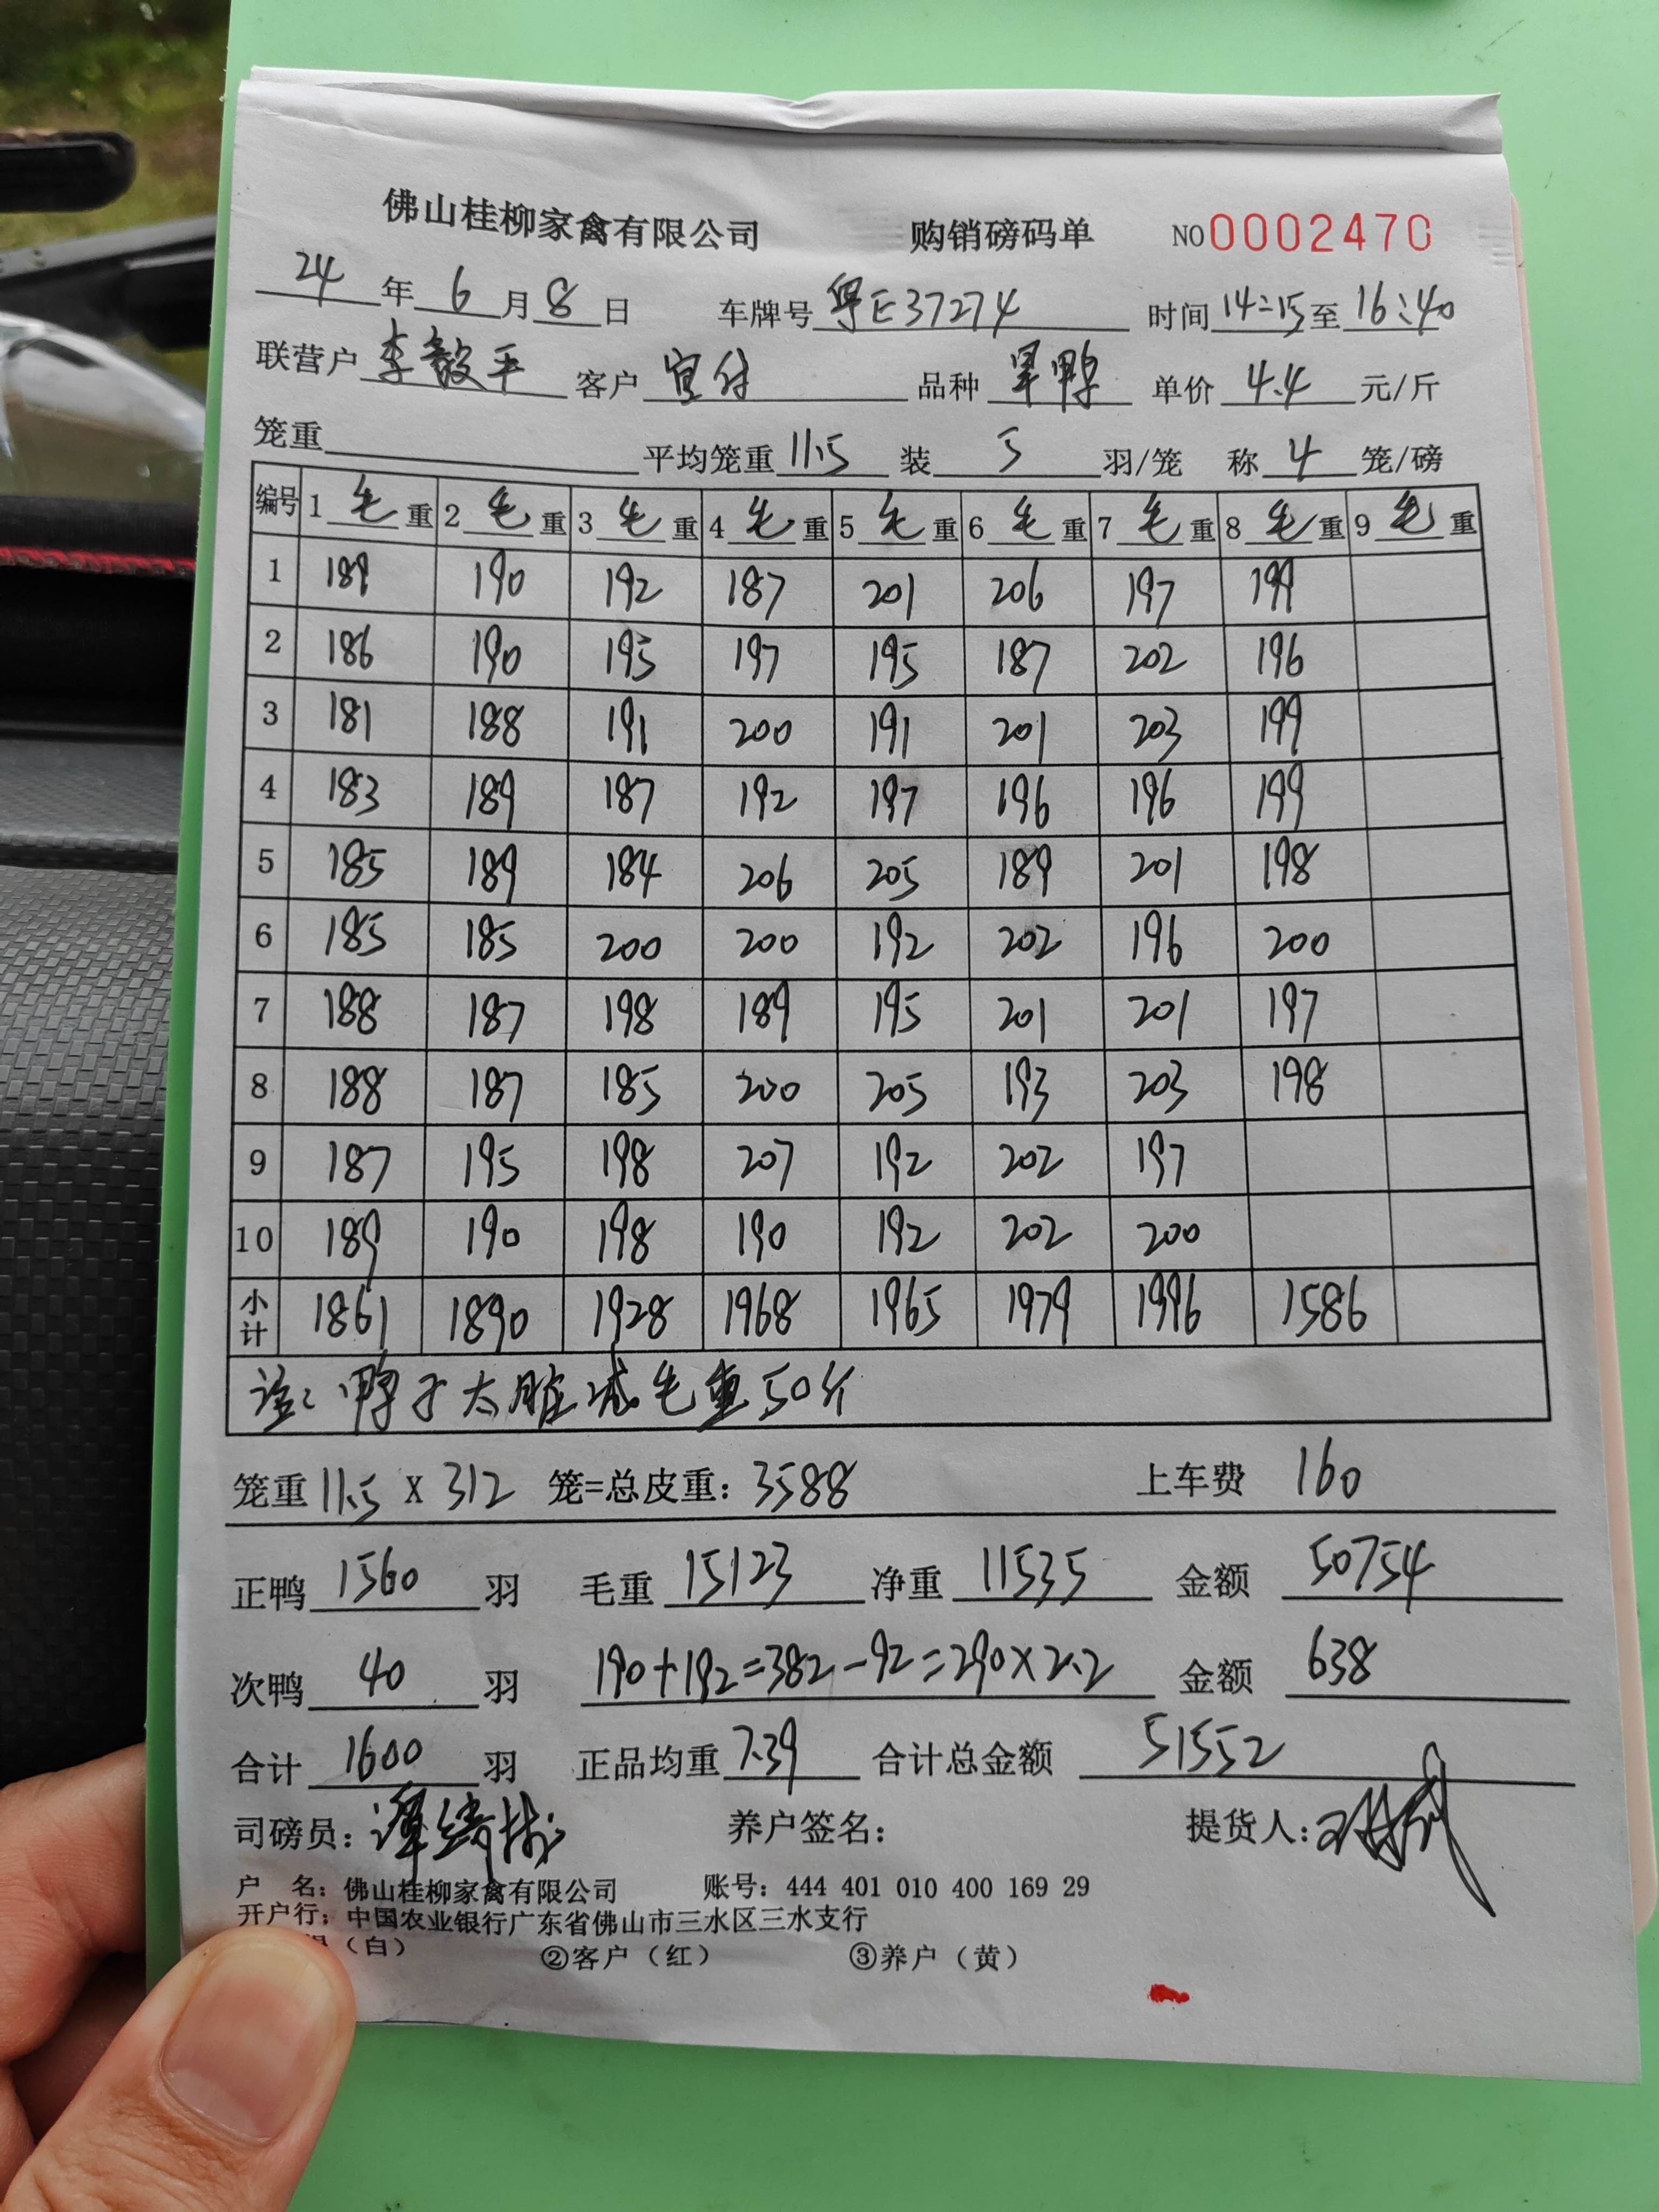 佛山桂柳家禽有限公司 购销磅码单 NO 0002470
24 年 6 月 8 日 车牌号 粤E37274 时间 14:15 至 16:40
联营户 李毅平 客户 宜付 品种 旱鸭 单价 4.4 元/斤
笼重 平均笼重 11.5 装 5 羽/笼 称 4 笼/磅
编号 1 毛 重 2 毛 重 3 毛 重 4 毛 重 5 毛 重 6 毛 重 7 毛 重 8 毛 重 9 毛 重
1 189 190 192 187 201 206 197 199
2 186 190 195 197 195 187 202 196
3 181 188 191 200 191 201 203 199
4 183 189 187 192 197 196 196 199
5 185 189 184 206 205 189 201 198
6 185 185 200 200 192 202 196 200
7 188 187 198 189 195 201 201 197
8 188 187 185 200 205 193 203 198
9 187 195 198 207 192 202 197
10 189 190 198 190 192 202 200
小计 1861 1890 1928 1968 1965 1979 1996 1586
注: 鸭子太脏减毛重50斤
笼重 11.5 X 312 笼=总皮重: 3588 上车费 160
正鸭 1560 羽 毛重 15123 净重 11535 金额 50754
次鸭 40 羽 190+192=382-92=290×2.2 金额 638
合计 1600 羽 正品均重 7.39 合计总金额 51552
司磅员: 养户签名: 提货人:
户 名: 佛山桂柳家禽有限公司 账号: 444 401 010 400 169 29
开户行: 中国农业银行广东省佛山市三水区三水支行
(白) ②客户(红) ③养户(黄)